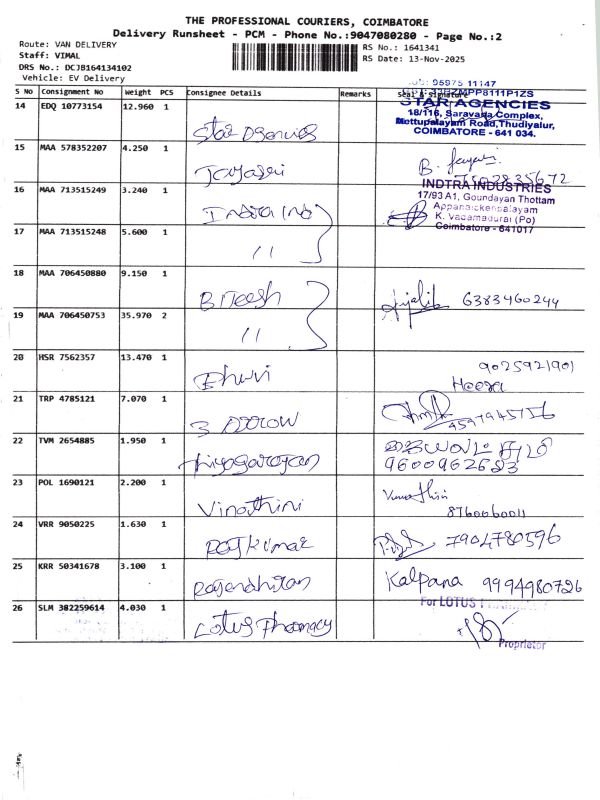 THE PROFESSIONAL COURIERS, COIMBATORE
Delivery Runsheet - PCM - Phone No.:9047080280 - Page No.:2
Route: VAN DELIVERY
RS No.: 1641341
Staff: VIMAL
RS Date: 13-Nov-2025
DRS No.: DCJB164134102
Vehicle: EV Delivery
S NO Consignment No Weight PCS Consignee Details Remarks Seal & Signature
14 EDQ 10773154 12.960 1 Star Agencies
STAR AGENCIES
18/116, Saravana Complex,
Mettupalayam Road, Thudiyalur,
COIMBATORE - 641 034.
15 MAA 578352207 4.250 1 Jayasri
16 MAA 713515249 3.240 1 Indtra Ind
INDTRA INDUSTRIES
17/93 A1, Goundayan Thottam
Appanaickenpalayam
K. Vadamadurai (Po)
Coimbatore - 641017
17 MAA 713515248 5.600 1 11
18 MAA 706450880 9.150 1 6383460244
19 MAA 706450753 35.970 2 11
20 HSR 7562357 13.470 1 9025921901
21 TRP 4785121 7.070 1 3 Arrow
22 TVM 2654885 1.950 1 Thiyagarajan
9600962683
23 POL 1690121 2.200 1 Vinothini
8760060011
24 VRR 9050225 1.630 1 Rajkumar 7904780596
25 KRR 50341678 3.100 1 Kalpana 9994980726
26 SLM 382259614 4.030 1 Lotus Pharmacy
For LOTUS
Proprietor